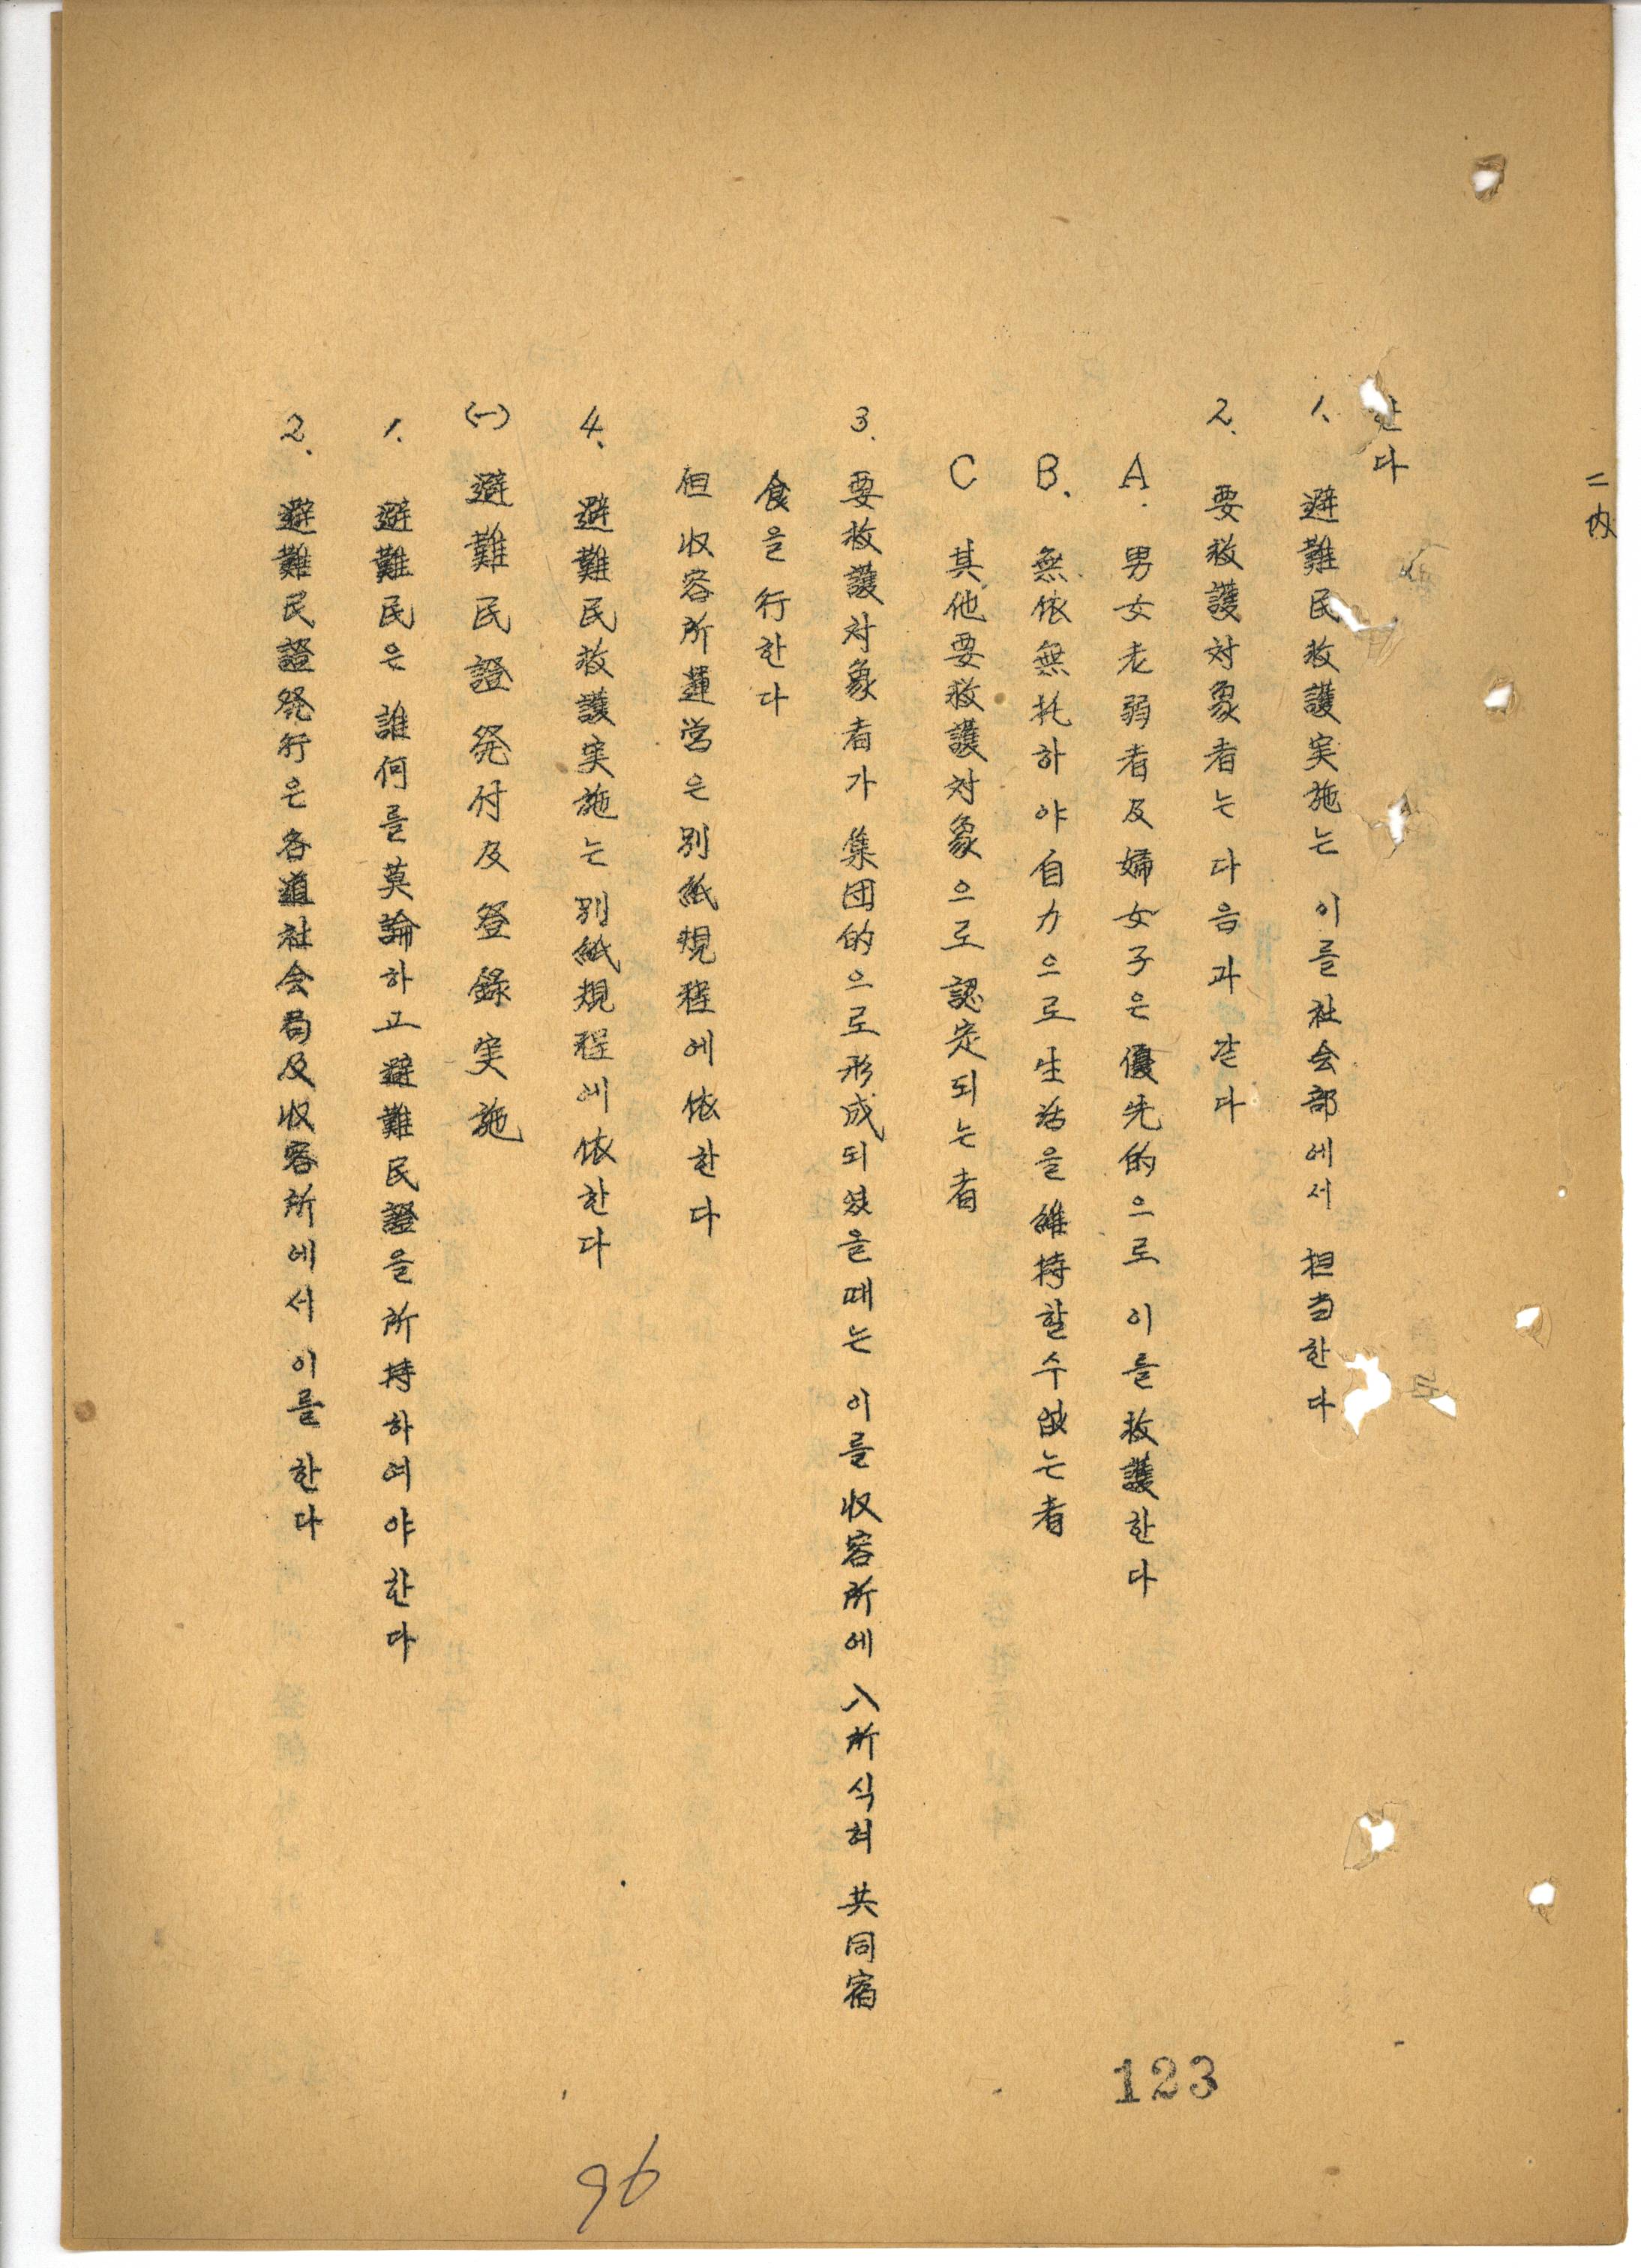 二内
한다
1. 避難民救護実施는 이를 社会部에서 担当한다
2. 要救護対象者는 다음과 같다
A. 男女老弱者及婦女子은 優先的으로 이를 救護한다
B. 無依無托하야 自力으로 生活을 維持할수없는者
C 其他要救護対象으로 認定되는者
3. 要救護対象者가 集団的으로 形成되였을때는 이를 収容所에 入所식혀 共同宿
食을 行한다
但 収容所運営은 別紙規程에 依한다
4. 避難民救護実施는 別紙規程에 依한다
(一) 避難民證発付及登錄実施
1. 避難民은 誰何를 莫論하고 避難民證을 所持하여야 한다
2. 避難民證発行은 各道社会局及収容所에서 이를 한다
123
96